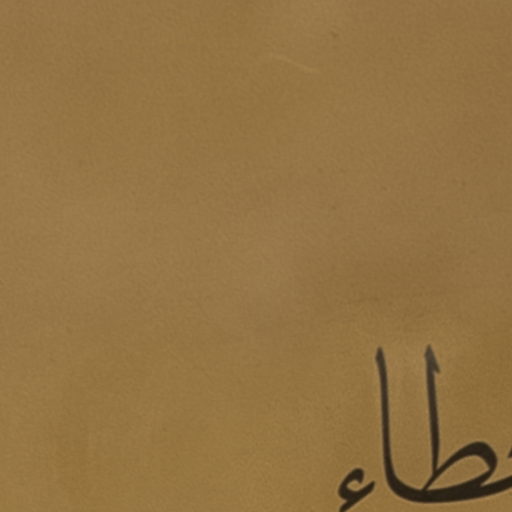 طاء